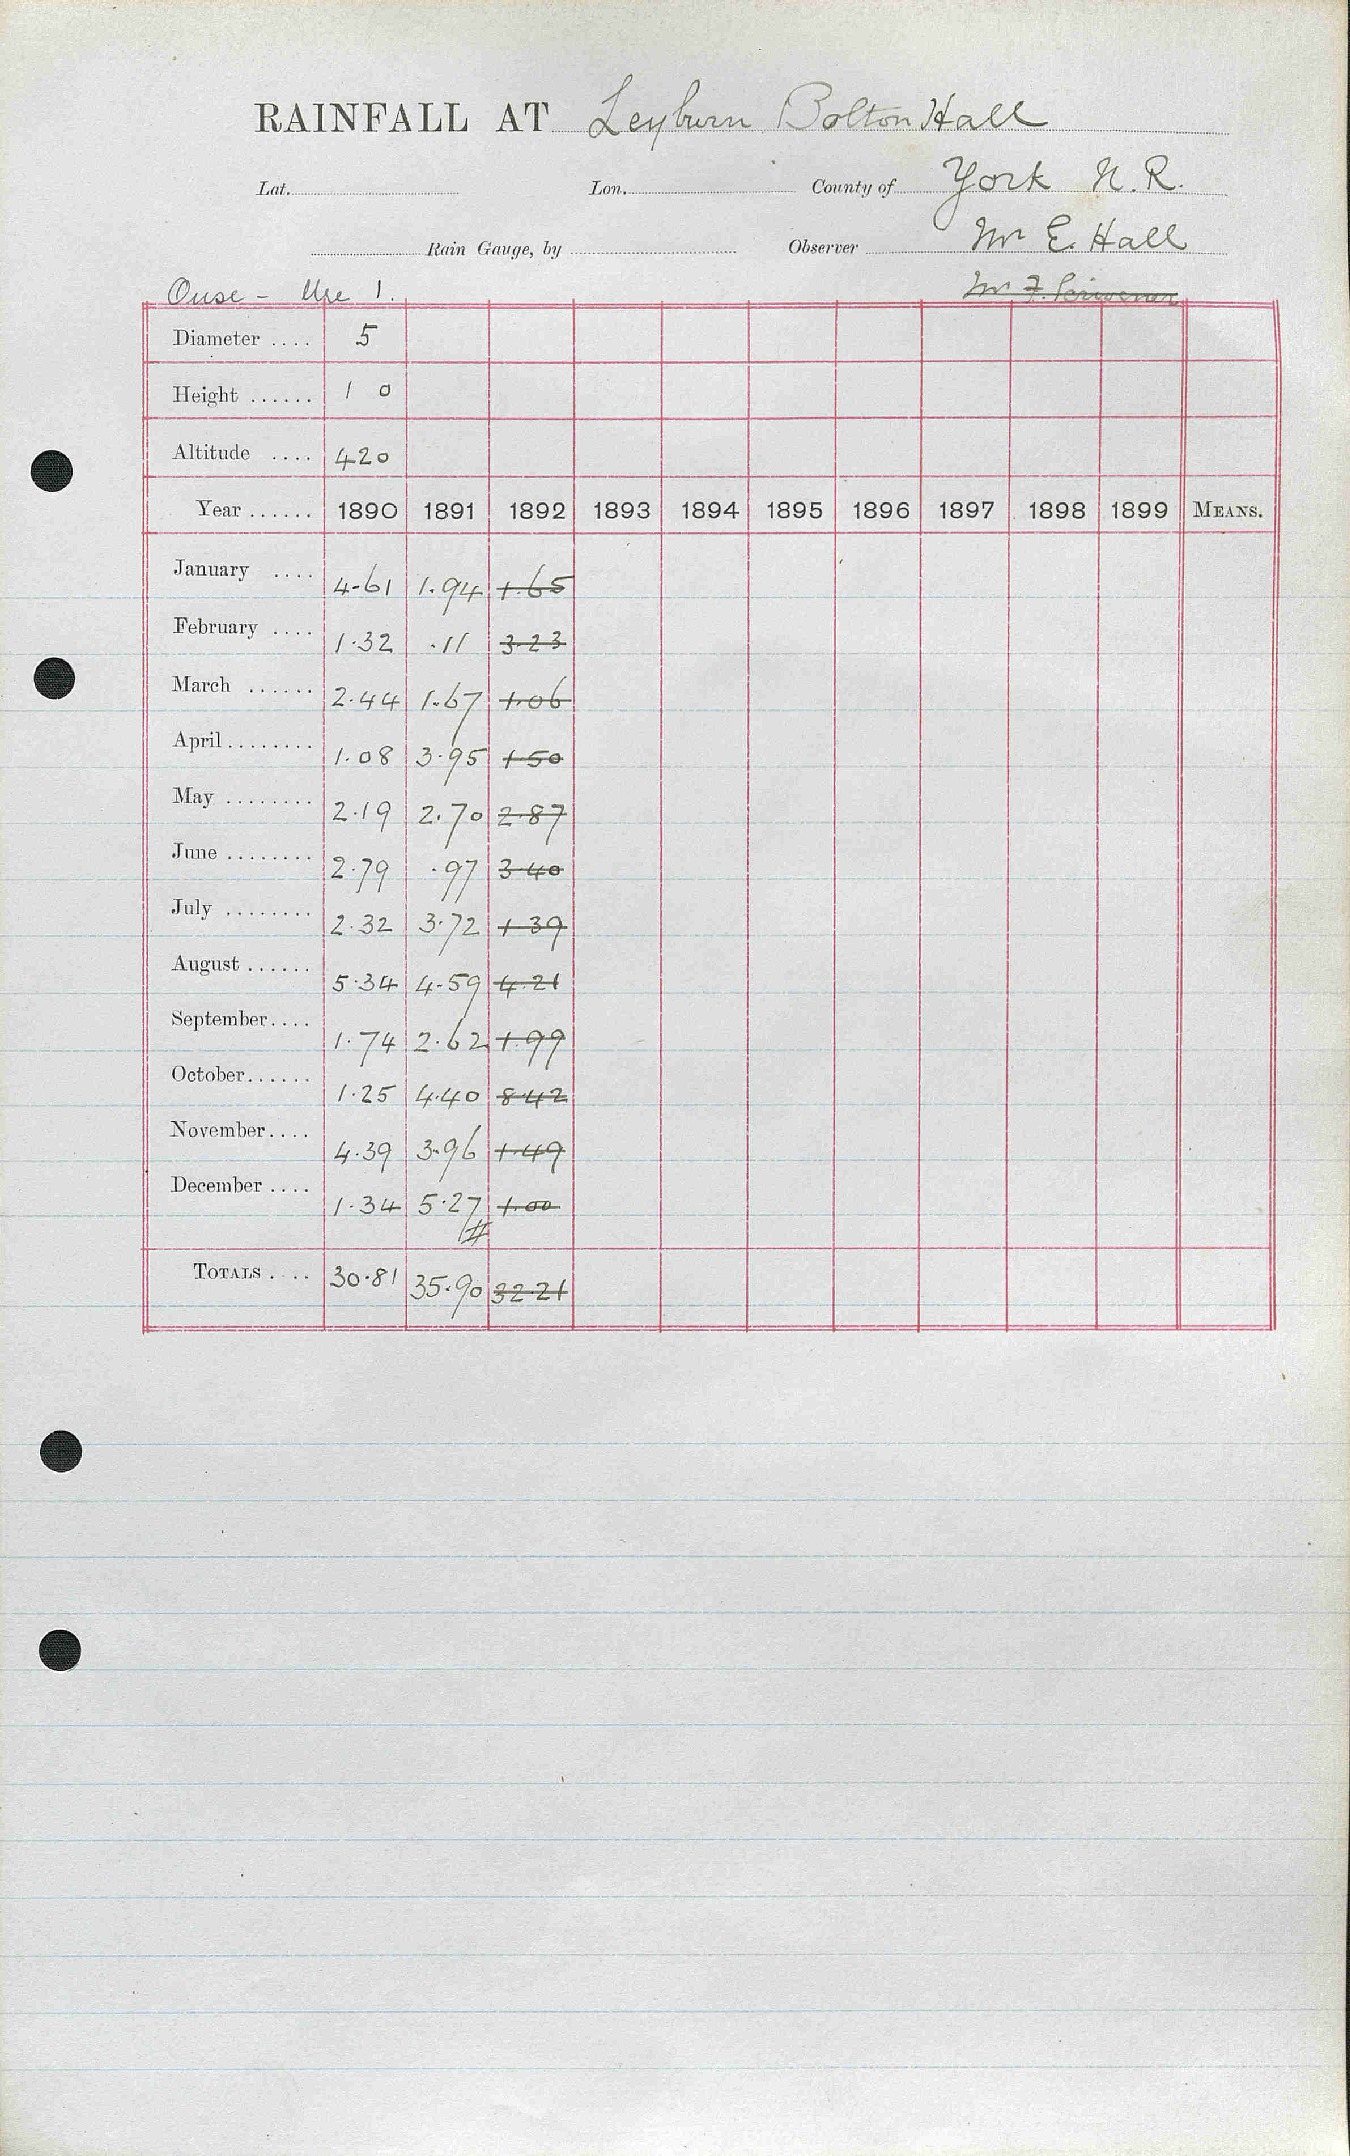 RAINFALL AT Leyburn Bolton Hall
Lat. Lon. County of York N.R.
Rain Gauge, by Observer Mr E. Hall
Ouse - Ure 1. Mr F. Scrivener
Diameter .... 5
Height ...... 1 0
Altitude .... 420
Year ...... 1890 1891 1892 1893 1894 1895 1896 1897 1898 1899 MEANS.
January .... 4.61 1.94 1.65
February .... 1.32 .11 3.23
March ...... 2.44 1.67 1.06
April ........ 1.08 3.95 1.50
May ........ 2.19 2.70 2.87
June ........ 2.79 .97 3.40
July ........ 2.32 3.72 1.39
August ...... 5.34 4.59 4.21
September.... 1.74 2.62 1.99
October...... 1.25 4.40 8.42
November.... 4.39 3.96 1.49
December .... 1.34 5.27 1.00
#
TOTALS .... 30.81 35.90 32.21